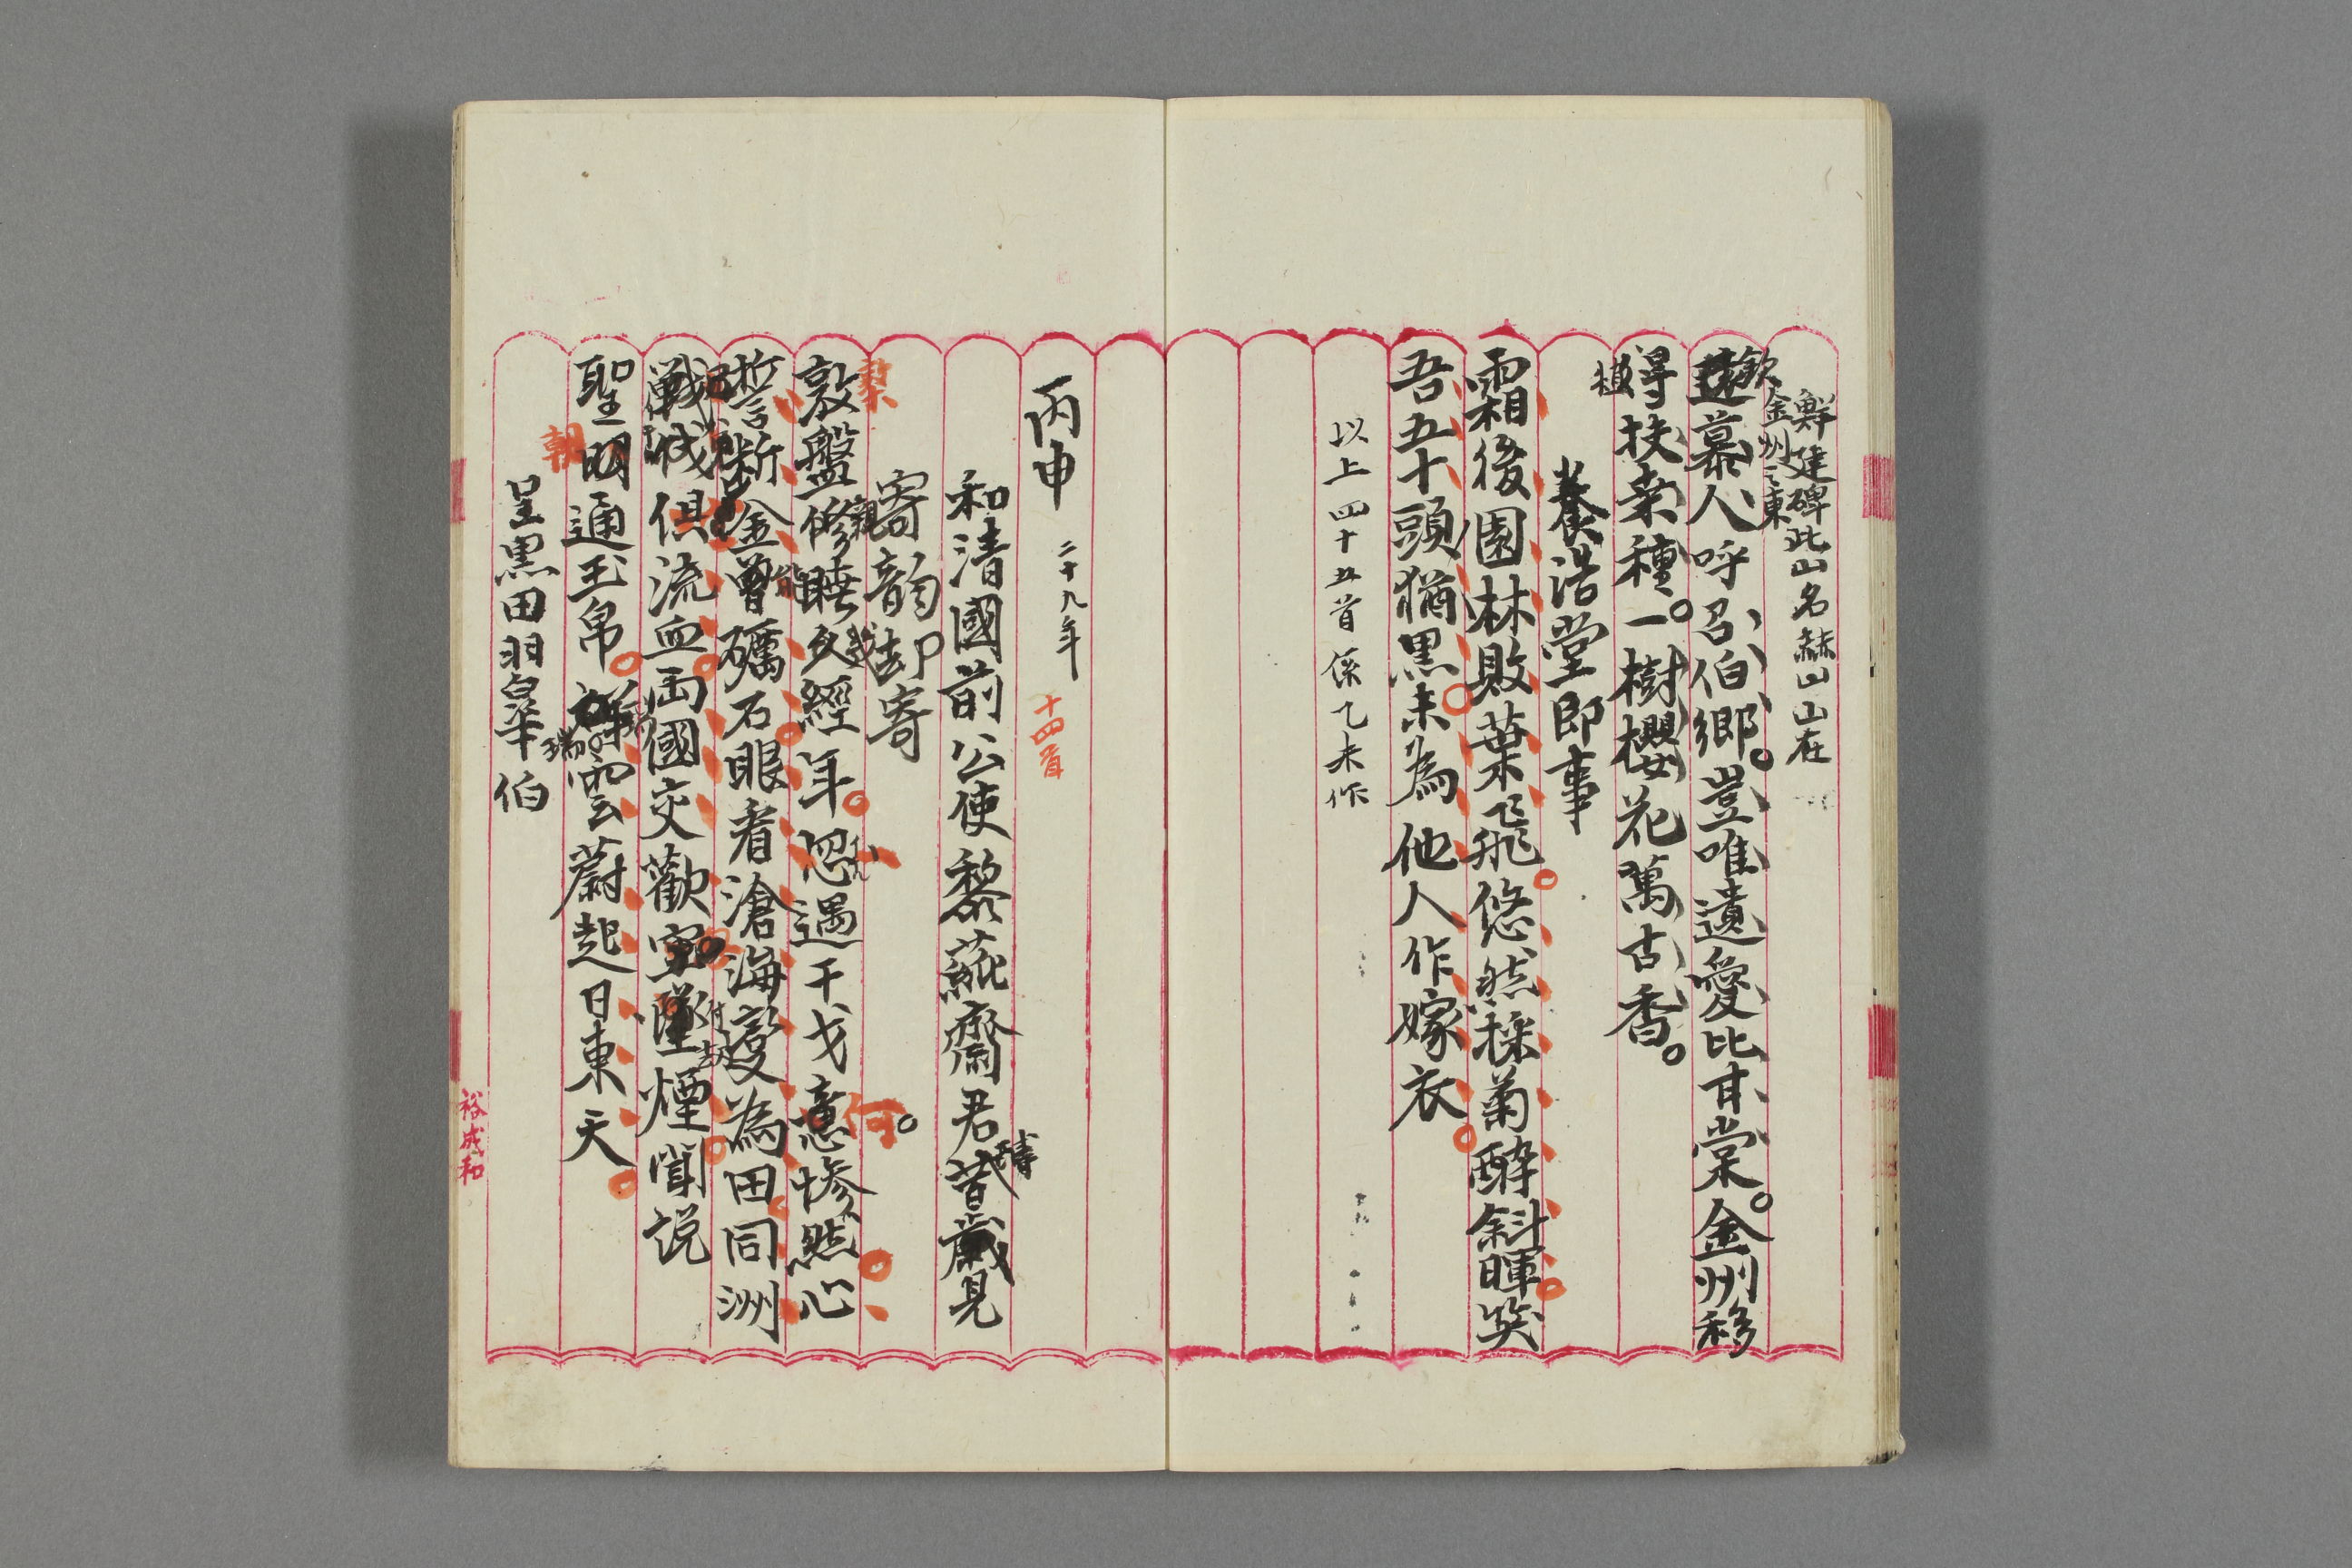 鮮建碑此山名赫山山在
金州之東
欽慕人呼召伯郷豈唯遺愛比甘棠金州移
得扶桒種一樹櫻花萬古香
植
養浩堂即事
霜後園林敗葉飛悠然採菊酔斜暉笑
吾五十頭猶黒未為他人作嫁衣
以上四十五首係乙未作
丙申 二十九年 十四首
和清國前公使黎蒓齋君昔歳見
疇
寄韵却寄
敦盤修睦久經年忽遇干戈意惨然心
槃
親
何
誓断金曽礪石眼看滄海變為田同洲
戦伐倶流血両國交歡墜煙聞説
付劫
聖明通玉帛祥雲蔚起日東天
朝
瑞
呈黒田羽皐伯
裕成和